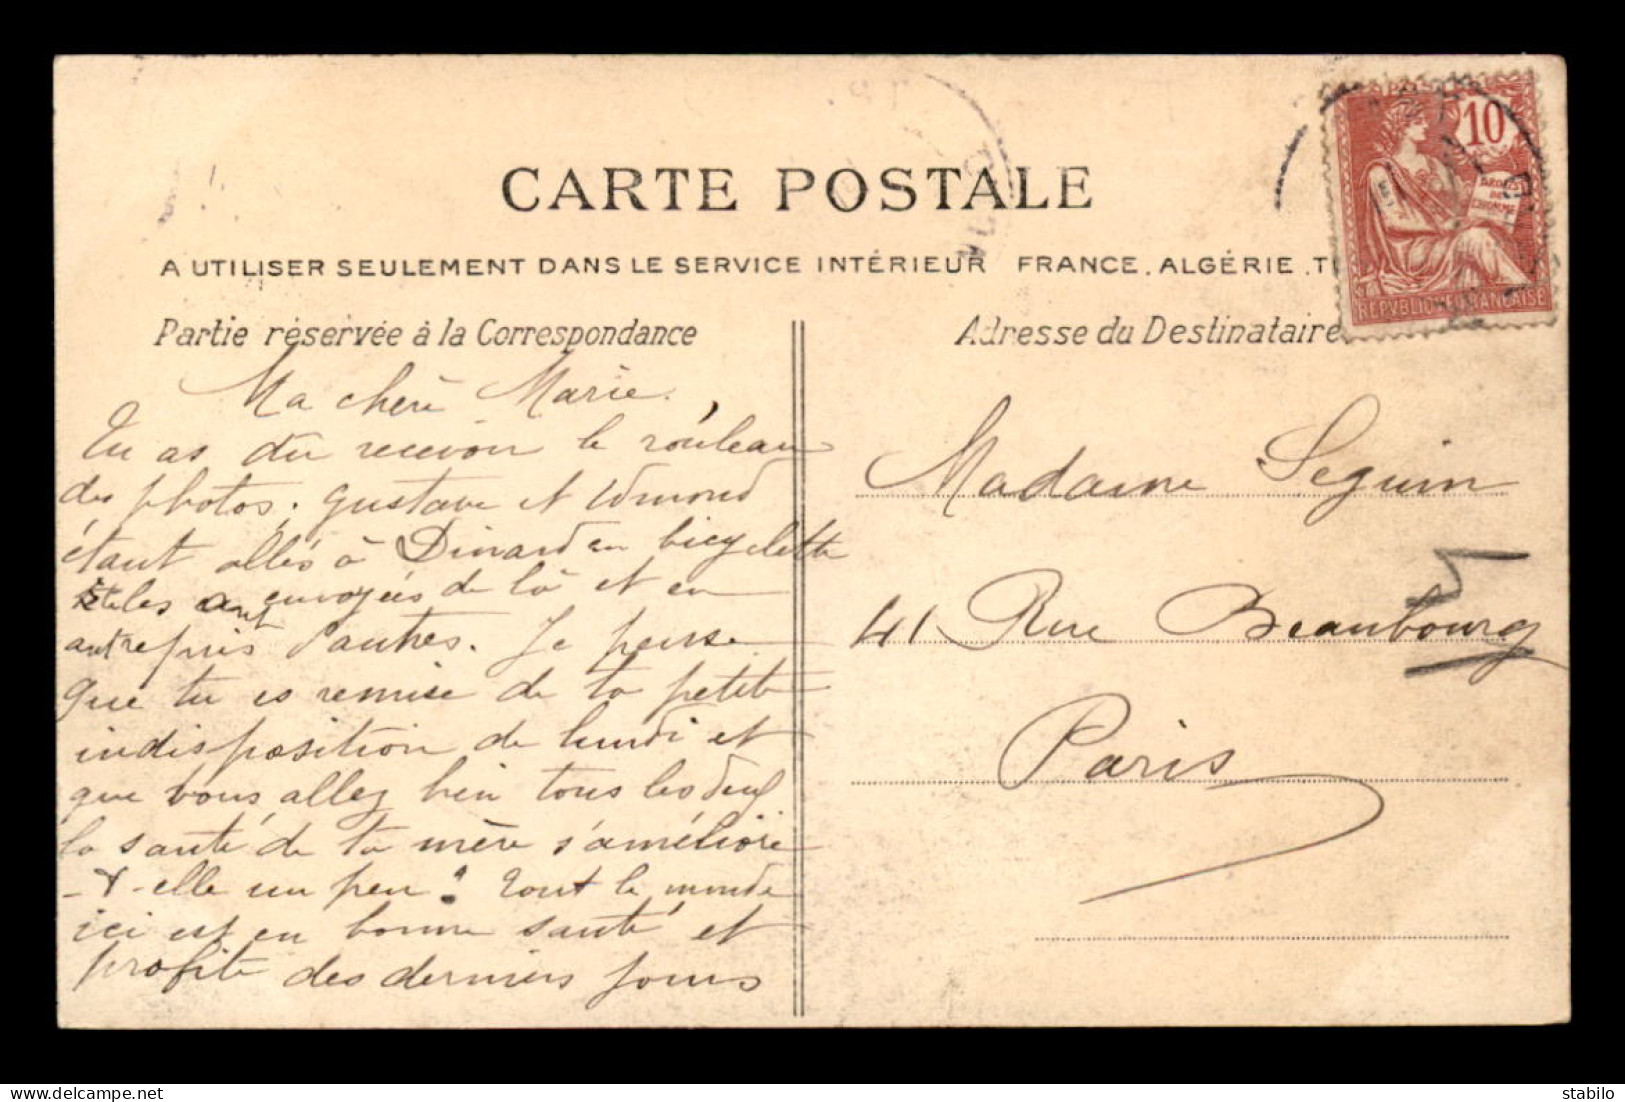 CARTE POSTALE
A UTILISER SEULEMENT DANS LE SERVICE INTÉRIEUR FRANCE. ALGÉRIE. T
Partie réservée à la Correspondance
Ma chère Marie,
Tu as du recevoir le rouleau
des photos. Gustave et Edmond
étant allés à Dinard en bicyclette
les ont envoyées de là et en
ont repris d'autres. Je pense
que tu es remise de ta petite
indisposition de lundi et
que vous allez bien tous les deux
la santé de ta mère s'améliore
-t-elle un peu ? Tout le monde
ici est en bonne santé et
profite des derniers jours
Adresse du Destinataire
Madame Seguin
41 Rue Beaubourg
Paris
5
10
DROITS
DE
L'HOMME
REPVBLIQVE FRANCAISE
stabilo